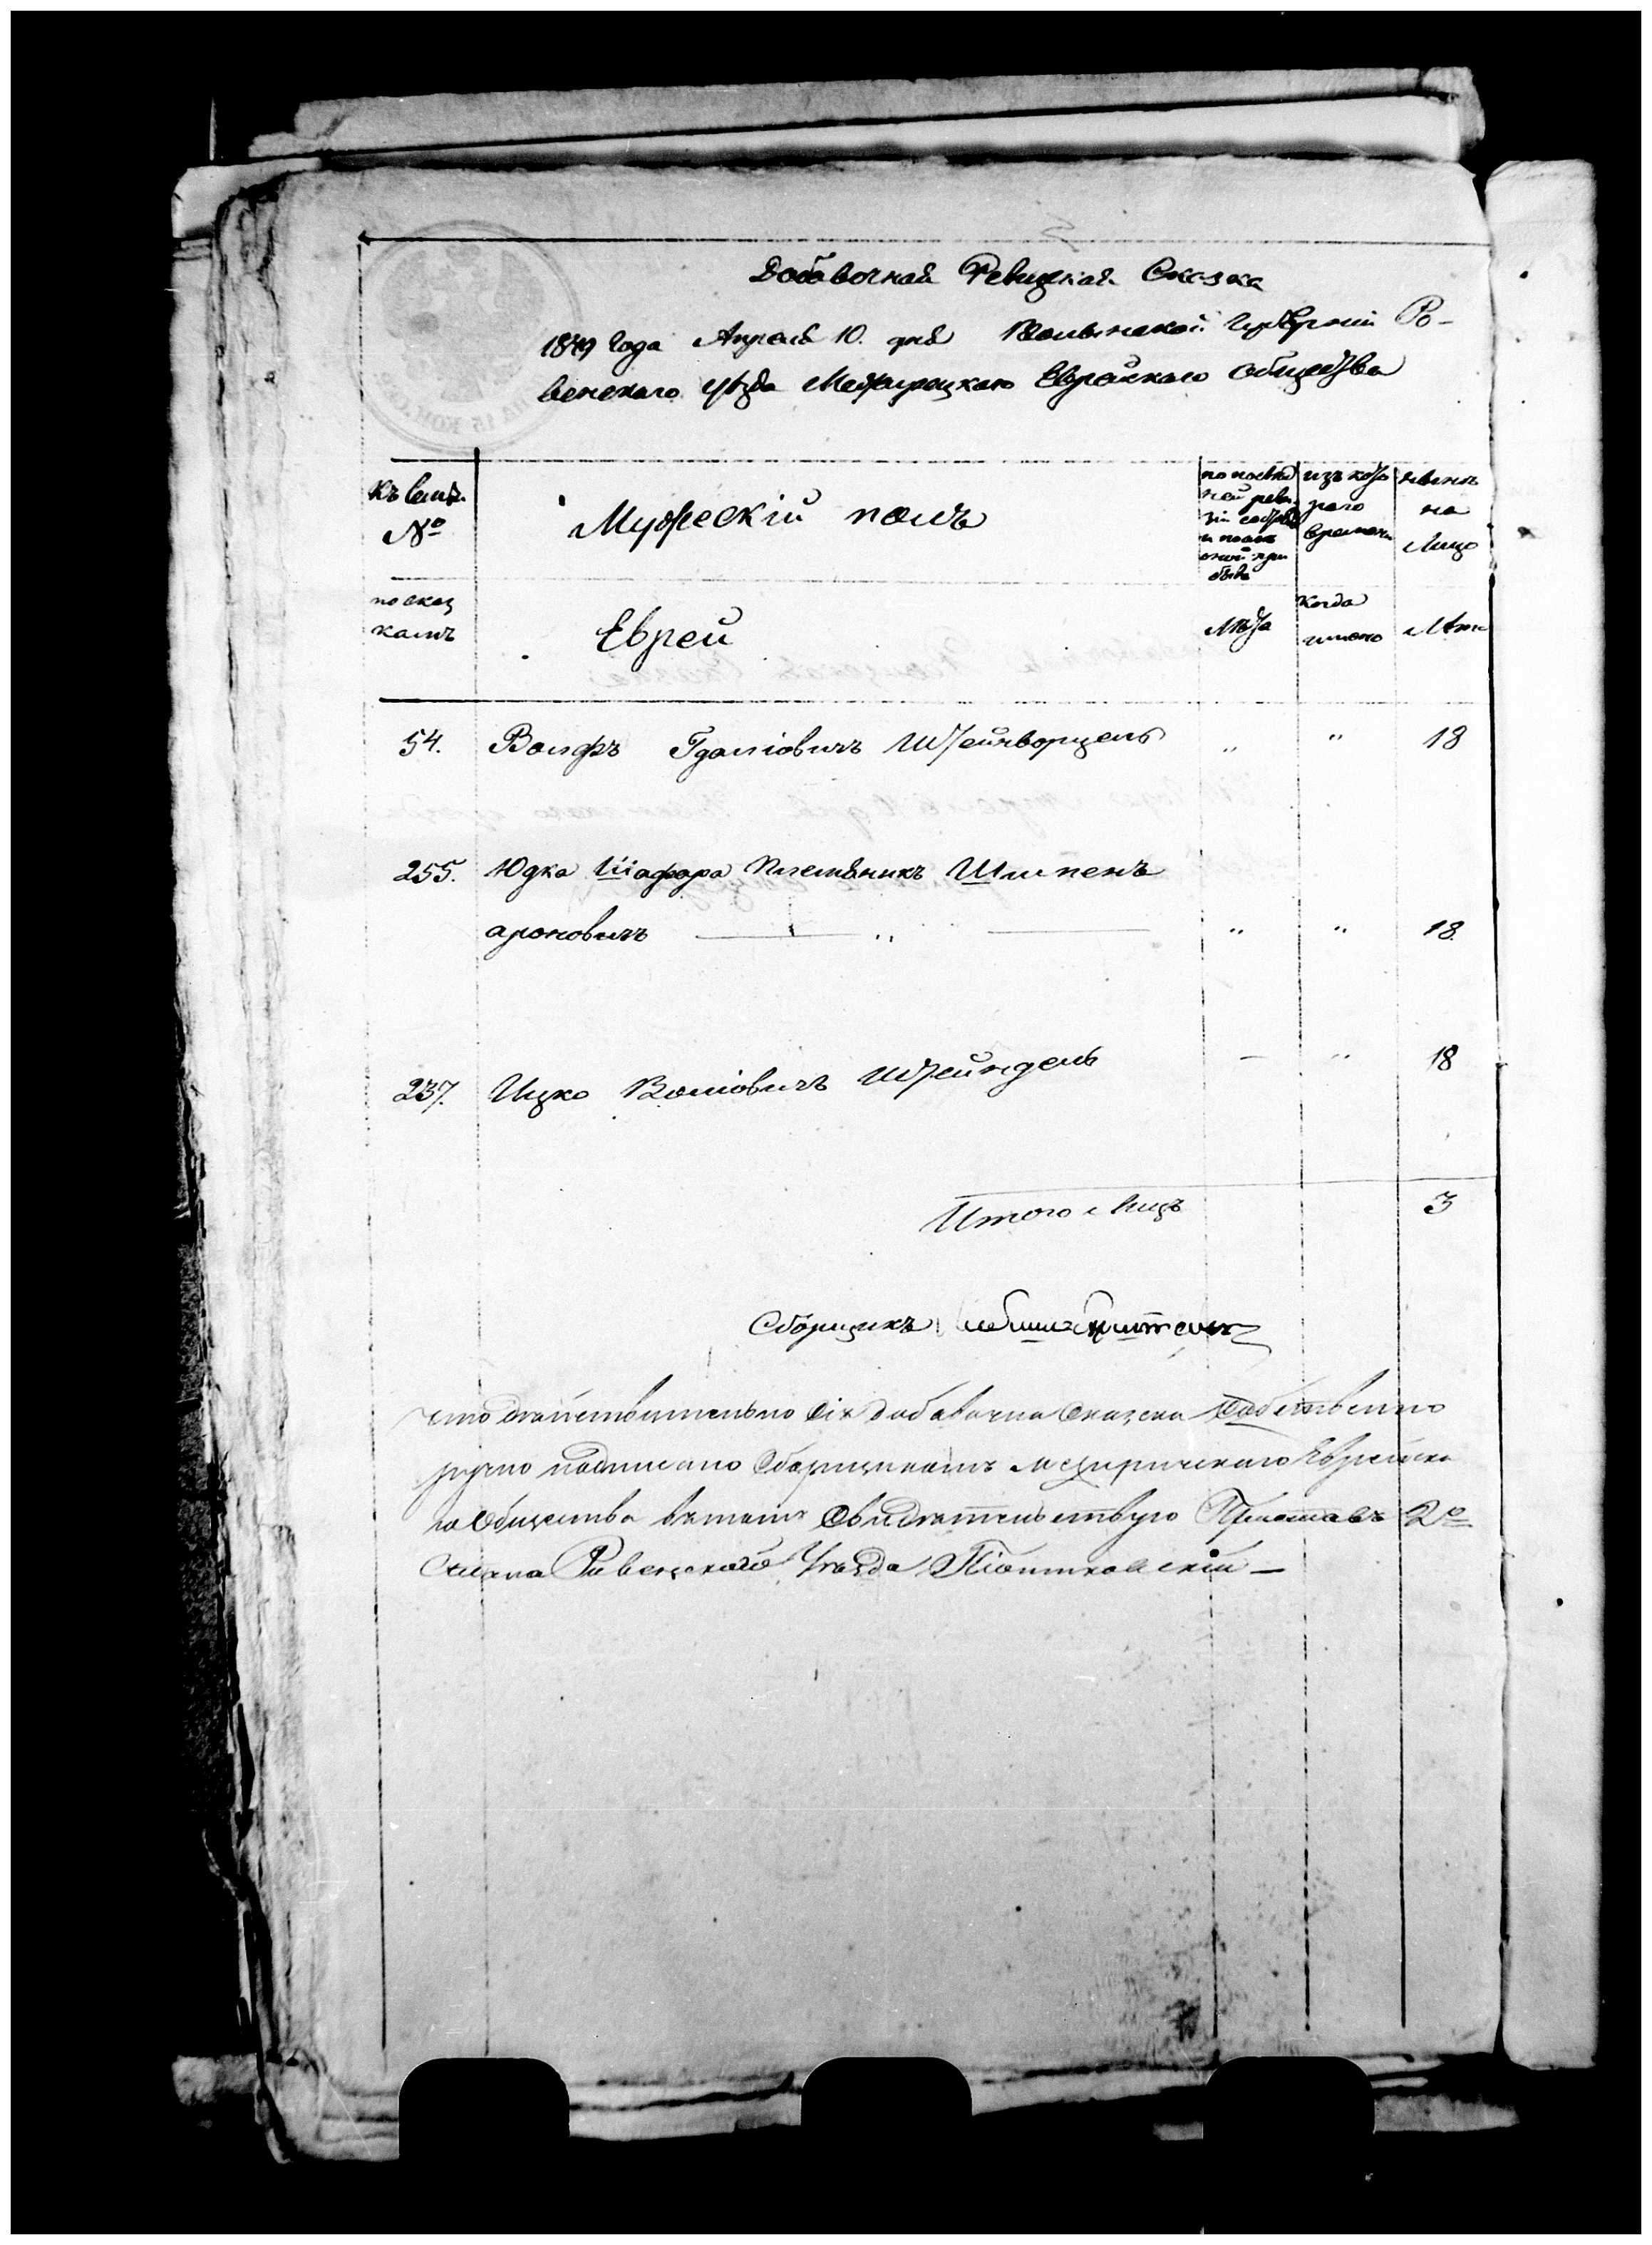 Добавочная Ревизкая Сказка
1849 года Апреля 10. дня Волынской Губернии Ро-
венского уѣзда Межирецкаго Еврейскаго общества
къ семь.
№
Мужескій полъ
по послед
ней реви
зіи состоял
и после
оной при
было
изъ кото
раго
времени
нынѣ
на
лицо
по сказ
камъ
Еврей
Лѣта
когда
имено
Лѣта
54. Волфъ Гдаліовичъ Штейнворцель " " 18
255. Юдка Шафора племяникъ Шлипенъ
ароновичъ " " " 18
237. Ицко Воліовичъ Штейндель - " 18
Итого лицъ 3
Сборщикъ
что дѣйствительно сія добавочна сказска собственно
ручно подписано Сборщикомъ межиричскаго Еврейска
го Общества въ томъ свидѣтельствую Приставъ 2го
Стана Ровенского Уѣзда Піонтковскій —